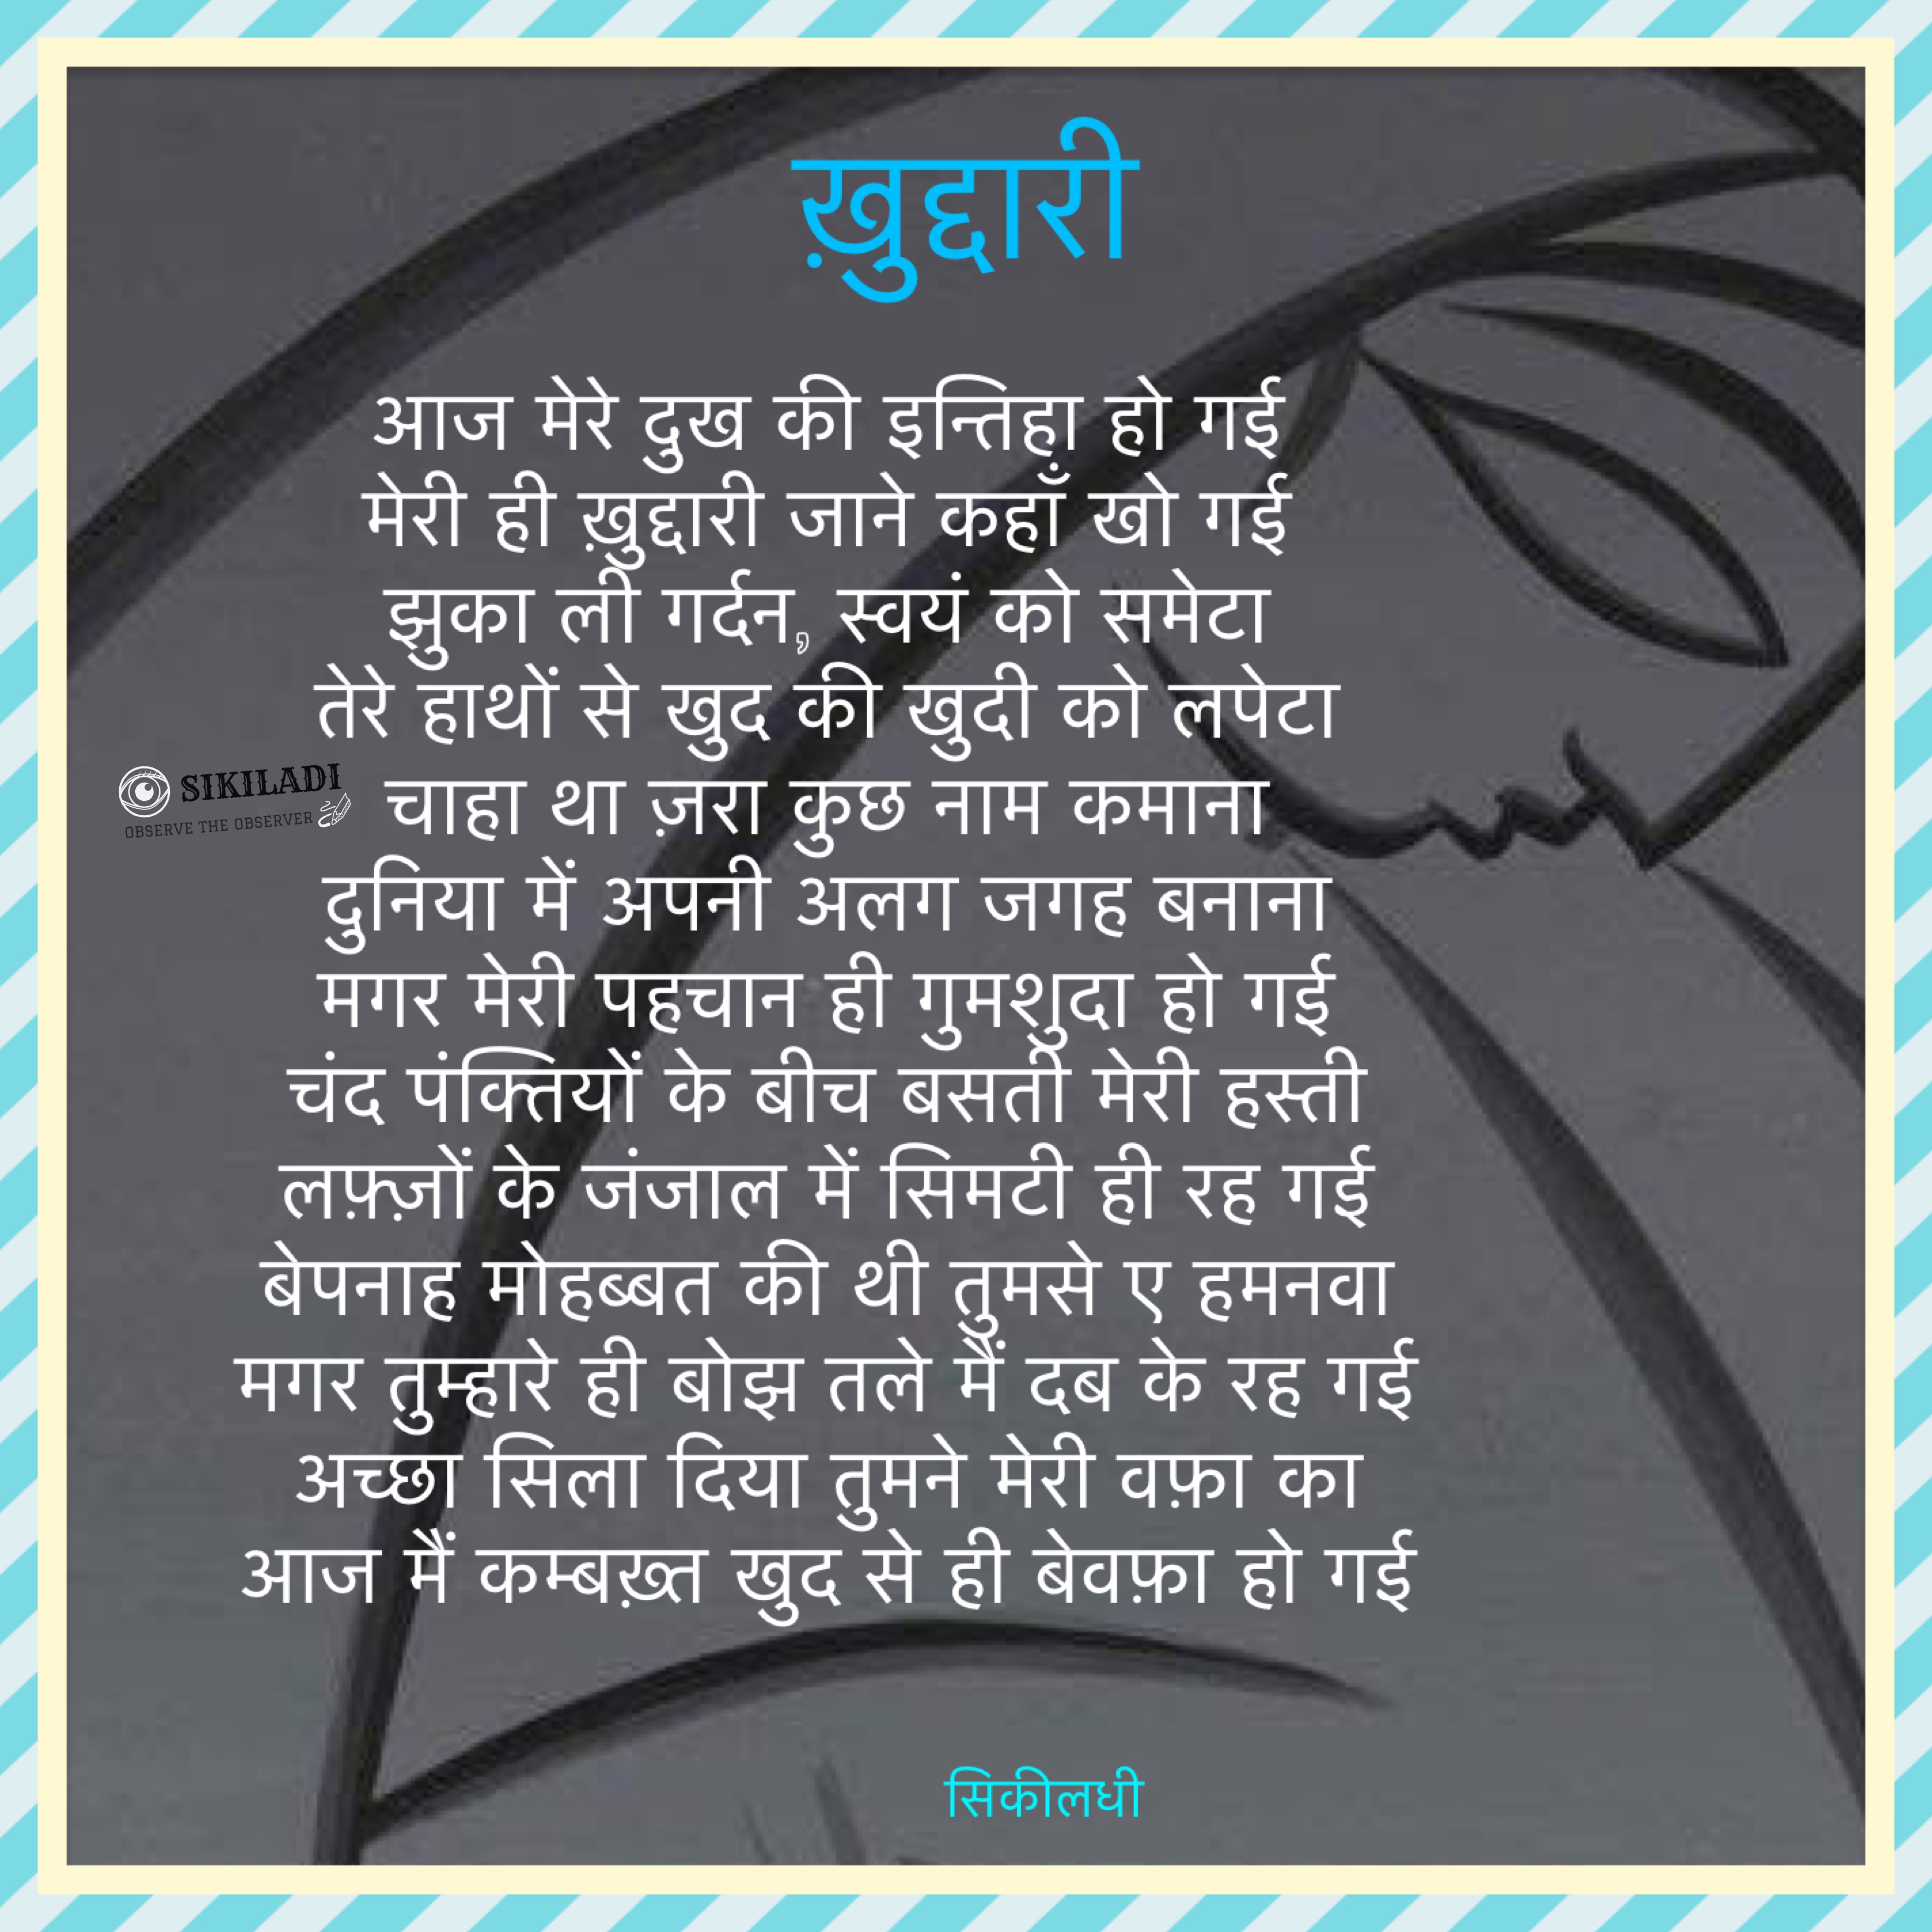 ख़ुद्दारी
आज मेरे दुख की इन्तिहा हो गई
मेरी ही ख़ुद्दारी जाने कहाँ खो गई
झुका ली गर्दन, स्वयं को समेटा
तेरे हाथों से खुद की खुदी को लपेटा
चाहा था ज़रा कुछ नाम कमाना
दुनिया में अपनी अलग जगह बनाना
मगर मेरी पहचान ही गुमशुदा हो गई
चंद पंक्तियों के बीच बसती मेरी हस्ती
लफ़्ज़ों के जंजाल में सिमटी ही रह गई
बेपनाह मोहब्बत की थी तुमसे ए हमनवा
मगर तुम्हारे ही बोझ तले मैं दब के रह गई
अच्छा सिला दिया तुमने मेरी वफ़ा का
आज मैं कम्बख़्त खुद से ही बेवफ़ा हो गई
SIKILADI
OBSERVE THE OBSERVER
सिकीलधी